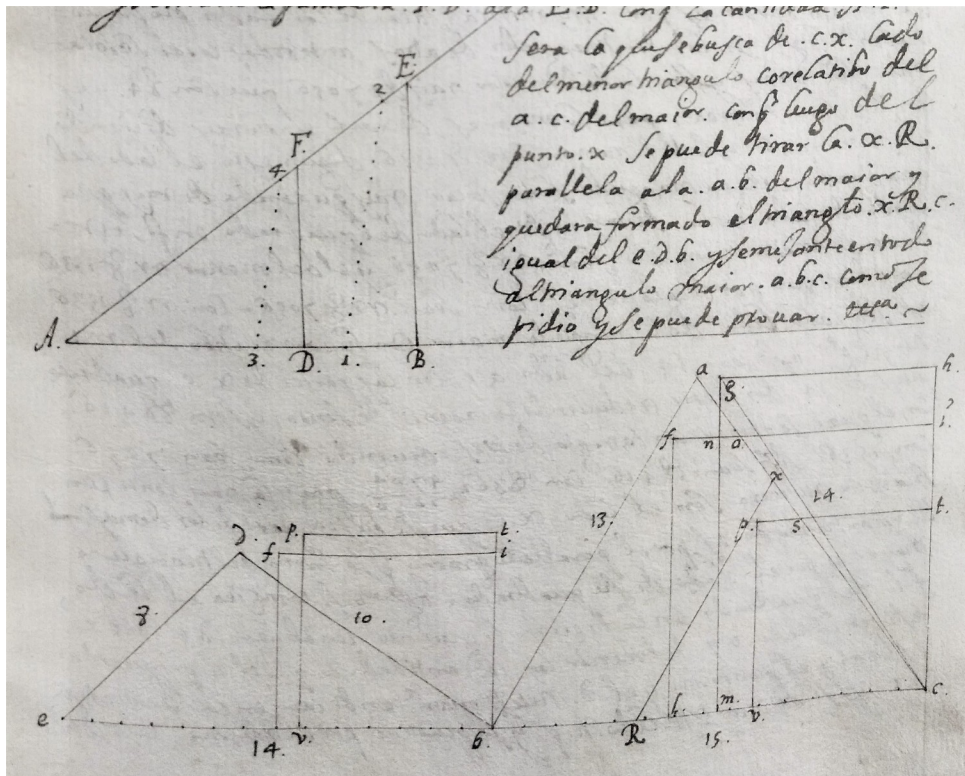 sera la que se busca de .c.x. lado
del menor triangulo corelatibo del
a.c. del maior. conq̃ luego del
punto .x se puede tirar la .x.R.
parallela a la .a.b. del maior y
quedara formado el triangło .x.R.c.
igual del e.D.b. y semejante en todo
al triangulo maior .a.b.c. como se
pidio y se puede prouar.
E
2
F.
4
A.
3.
D.
1.
B.
a
g
h.
f
n
o
i.
x
13.
14.
p.
s
t.
d.
p.
f
t.
i
8.
10.
e
14.
v.
b.
R
l.
m.
v.
c.
15.